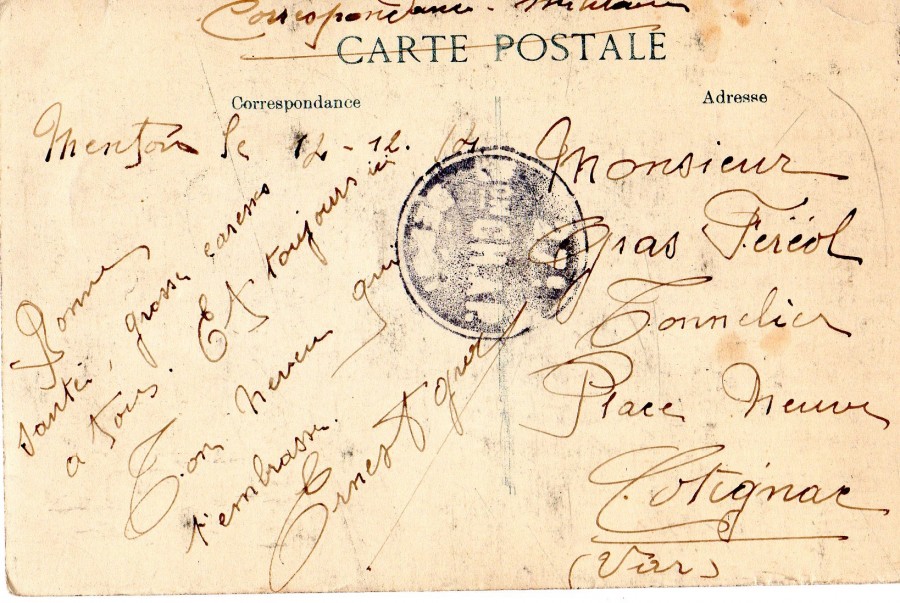 Correspondance militaire
CARTE POSTALE
Correspondance
Adresse
Menton le 12-12.
Bonne
santé, grosse caresse
a tous. Et toujours
Ton neveu qui
t'embrasse.
Ernest
Monsieur
Gras Feréol
Tonnelier
Place Neuve
Cotignac
(Var)